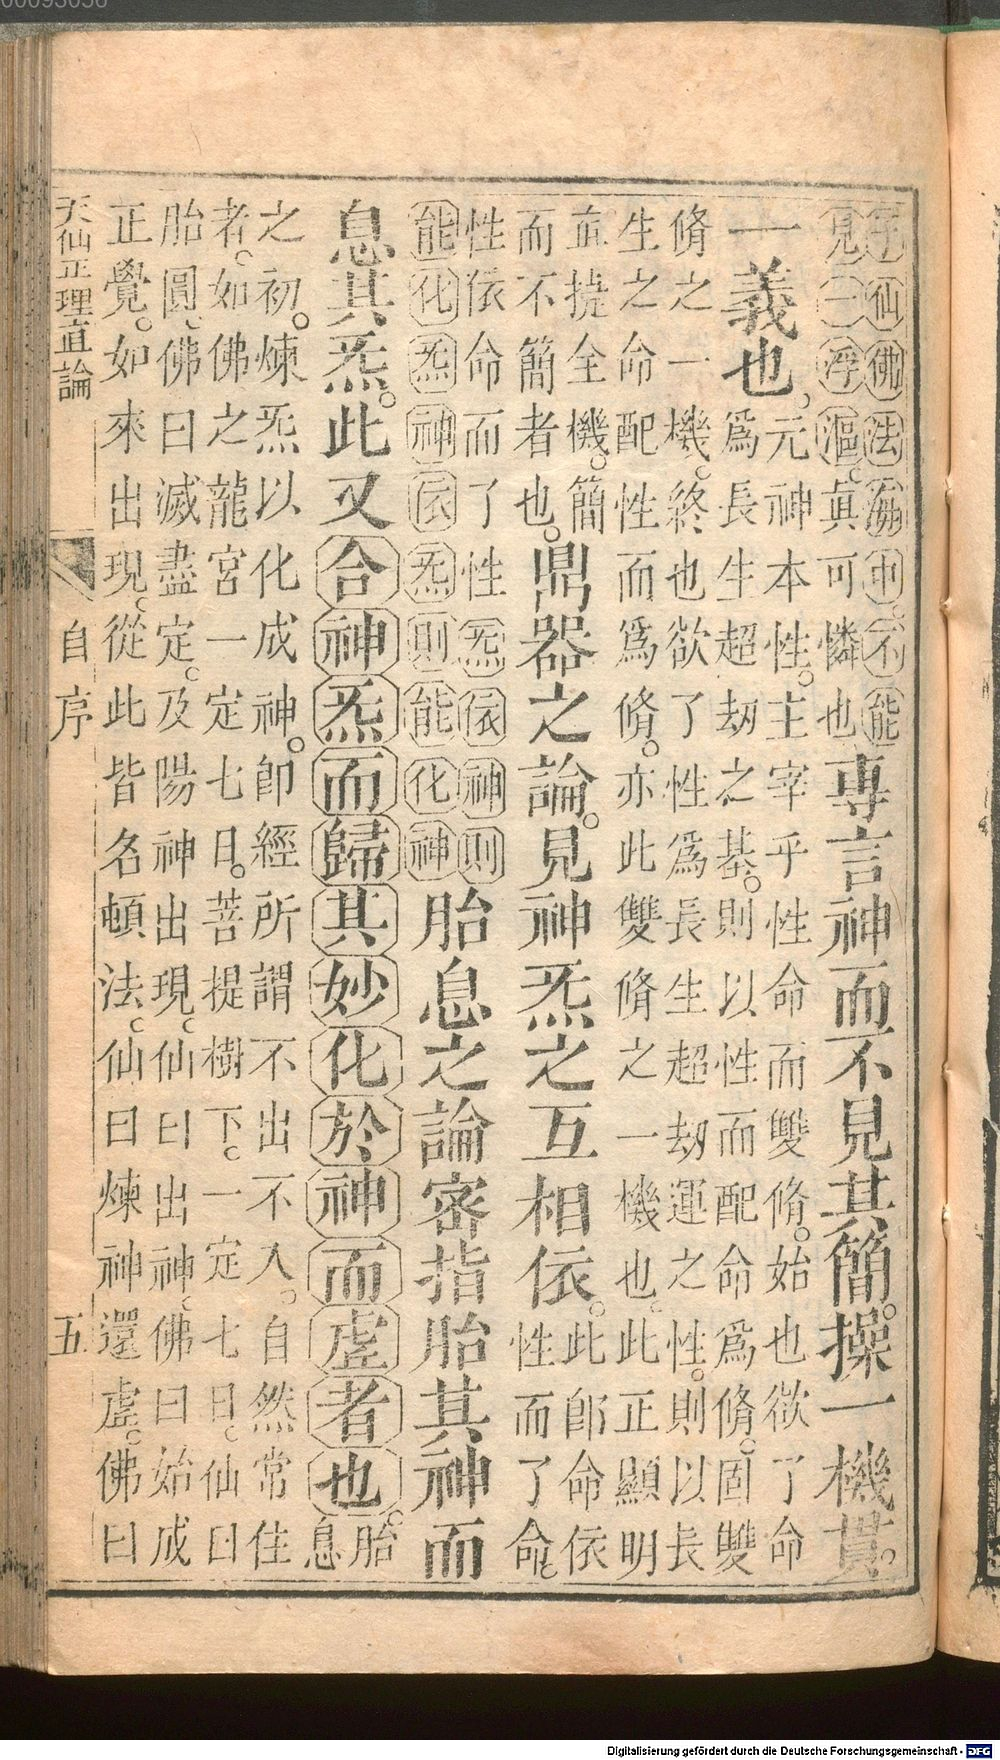 仙佛法海中。不能
見一浮漚。眞可憐也
專言神而不見其簡。操一機貫。
一義也、
元神本性。主宰乎性命而雙脩。始也欲了命
爲長生超劫之基。則以性而配命爲脩。固雙
脩之一機。終也欲了性爲長生超劫運之性。則以長
生之命配性而爲脩。亦此雙脩之一機也。此正顯明
直捷全機。簡
而不簡者也。
鼎器之論。見神炁之互相依。
此卽命依
性而了命。
性依命而了性炁依神則
能化炁神依炁則能化神
胎息之論審指胎其神而
息其炁。此又合神炁而歸其妙化於神而虛者也。
胎
息
之初。煉炁以化成神。卽經所謂不出不入。自然常住
者。如佛之龍宮一定七日。菩提樹下。一定七日。仙曰
胎圓、佛曰滅盡定。及陽神出現。仙曰出神。佛曰始成
正覺。如來出現。從此皆名頓法。仙曰煉神還虛。佛曰
天仙正理直論 自序 五
Digitalisierung gefördert durch die Deutsche Forschungsgemeinschaft - DFG